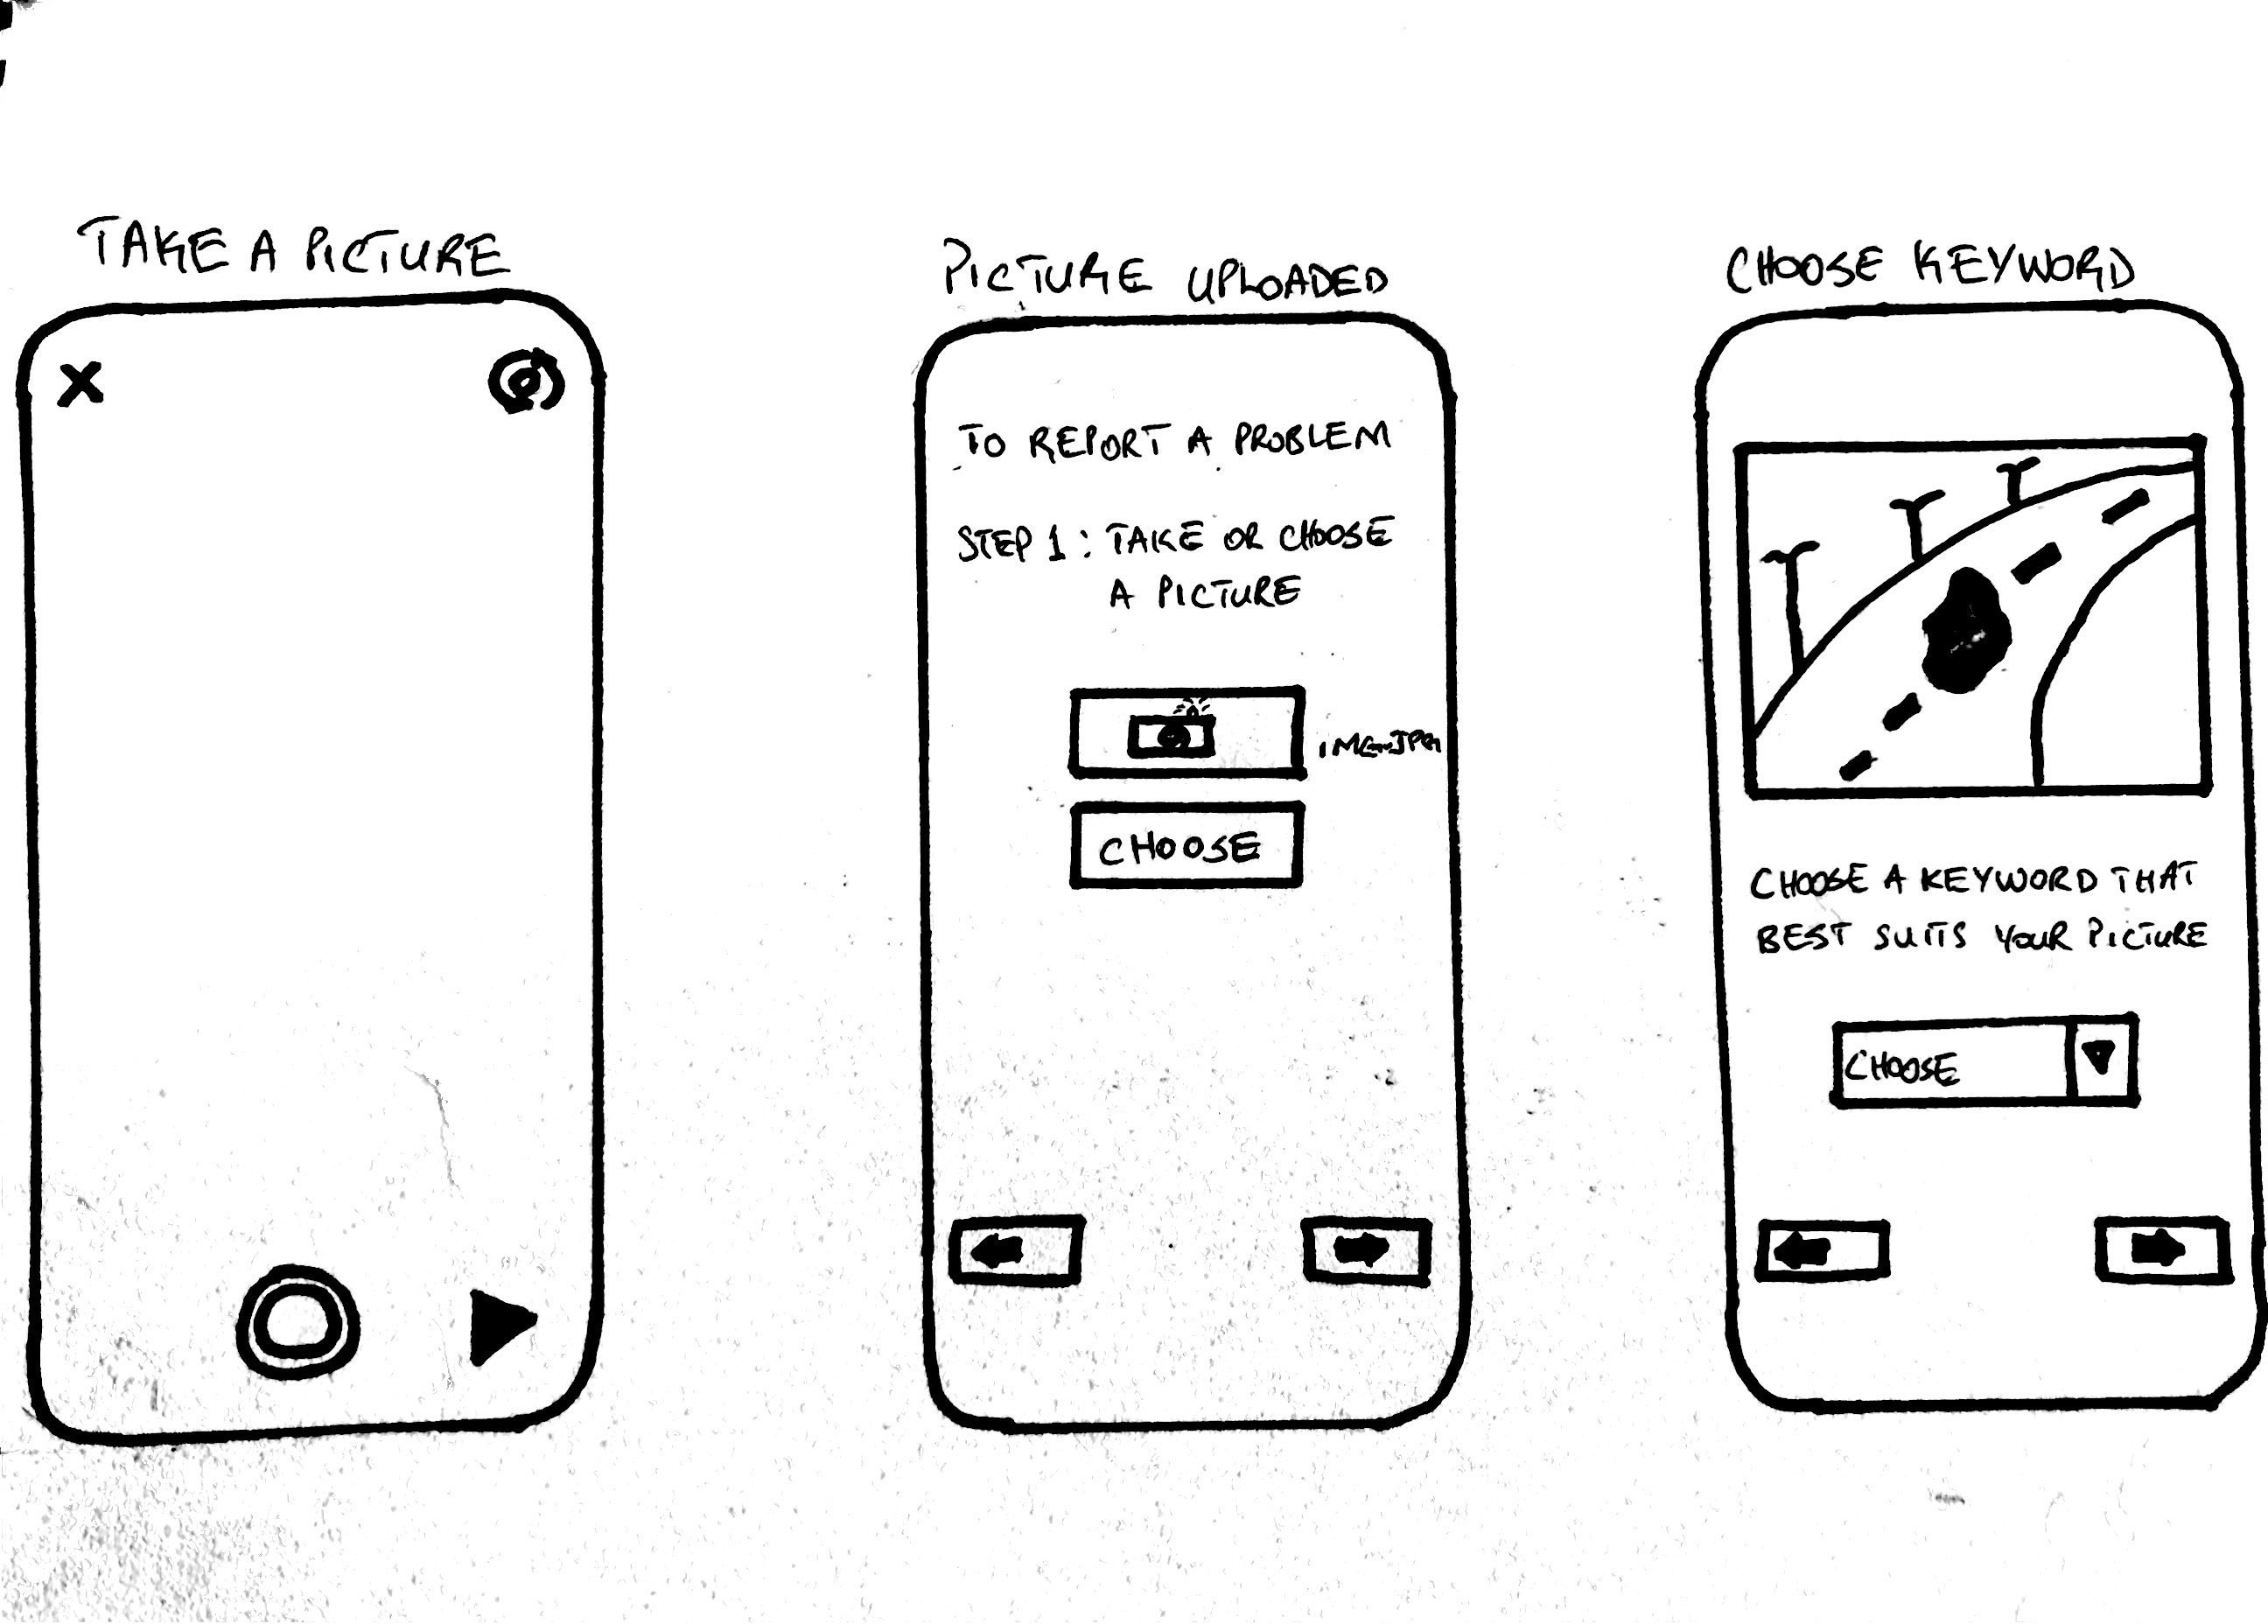 TAKE A PICTURE
PICTURE UPLOADED
TO REPORT A PROBLEM
STEP 1: TAKE OR CHOOSE
A PICTURE
IMG.JPG
CHOOSE
CHOOSE KEYWORD
CHOOSE A KEYWORD THAT
BEST SUITS YOUR PICTURE
CHOOSE